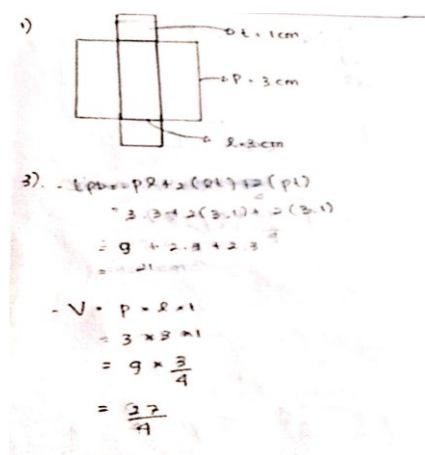 1)
t = 1cm
P = 3 cm
l = 3 cm
3). - Lpb = pl + 2(lt) + 2(pt)
= 3.3 + 2(3.1) + 2(3.1)
= 9 + 2.3 + 2.3
= 21 cm
- V = p × l × t
= 3 × 3 × 1
= 9 × 3/4
= 27/4